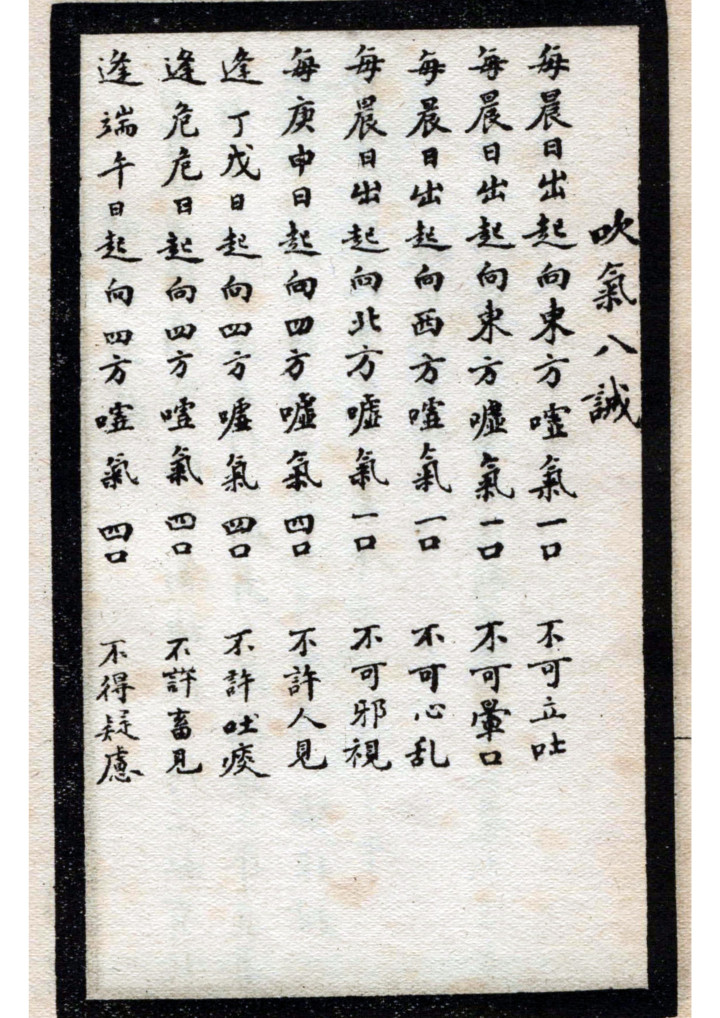 吹氣八誡
每晨日出起向東方噓氣一口 不可立吐
每晨日出起向東方噓氣一口 不可暈口
每晨日出起向西方噓氣一口 不可心乱
每晨日出起向北方噓氣一口 不可邪視
每庚申日起向四方噓氣四口 不許人見
逢丁戊日起向四方噓氣四口 不許吐痰
逢危危日起向四方噓氣四口 不許畜見
逢端午日起向四方噓氣四口 不得疑慮